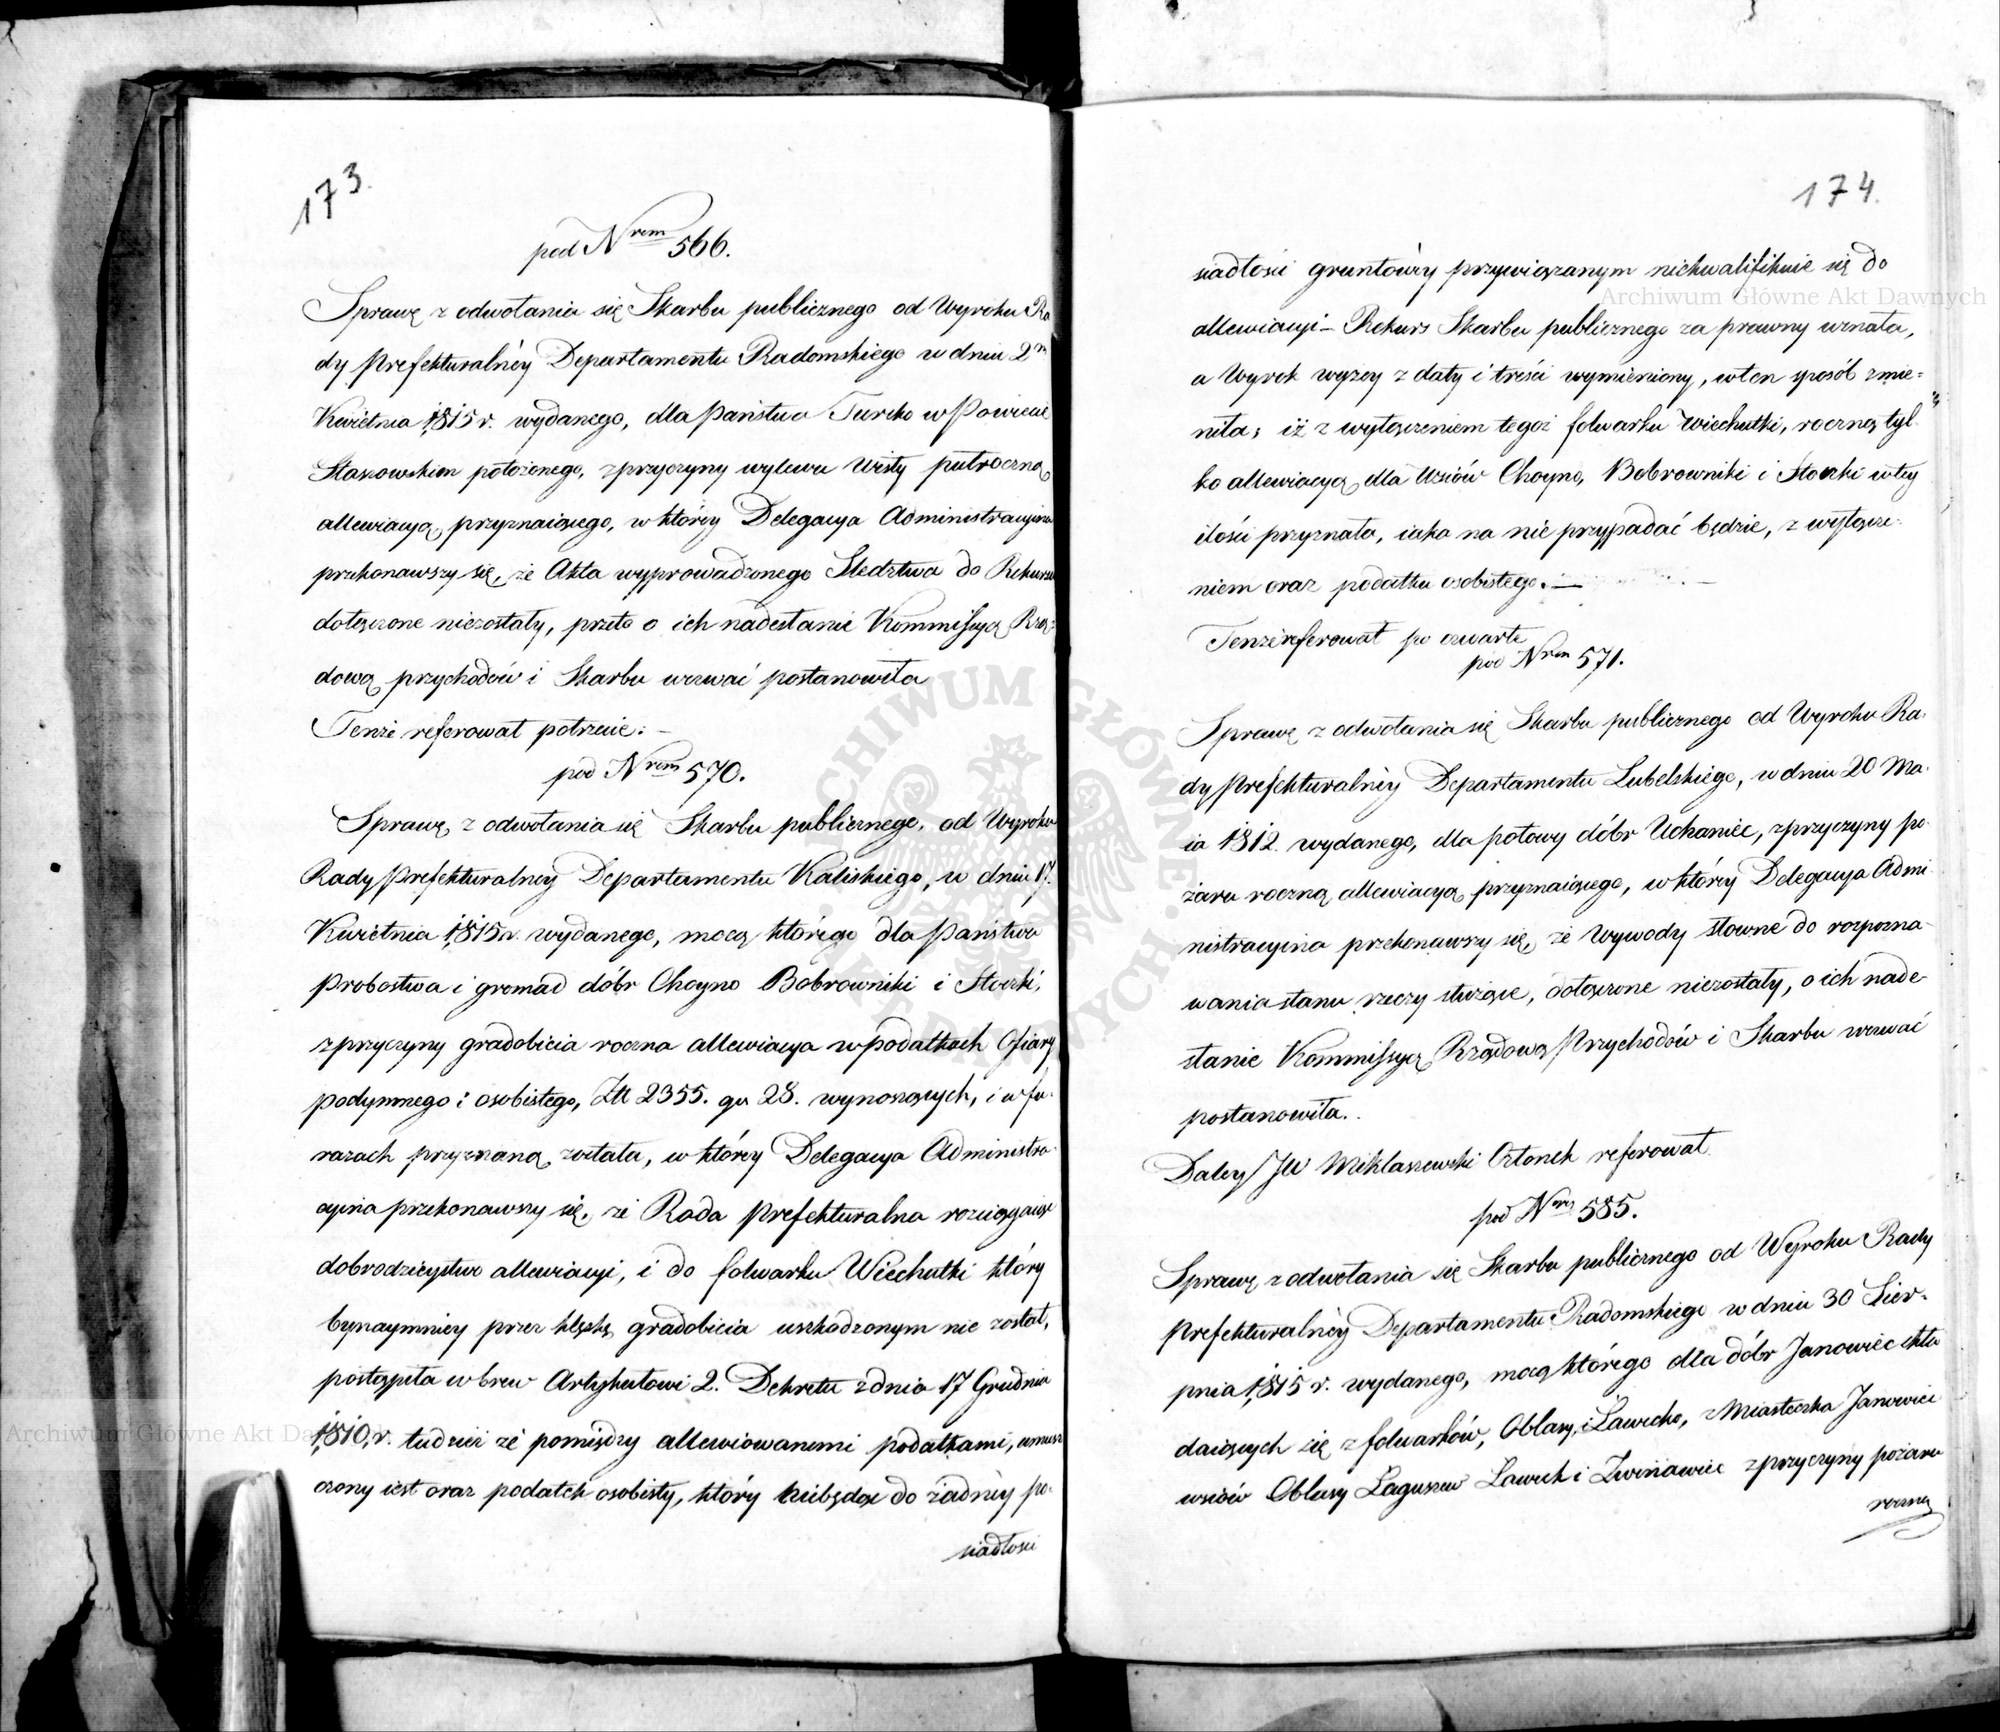 173.
pod Nrem 566.
Sprawę z odwołania się Skarbu publicznego od Wyroku Ra
dy Prefekturalnéy Departamentu Radomskiego w dniu 2m
Kwietnia 1815 r. wydanego, dla Państwa Tursko w Powiecie
Staszowskim położonego, z przyczyny wylewu Wisły półroczną
allewiacyą przyznaiącego, w któréy Delegacya Administracyina
przekonawszy się, że Akta wyprowadzonego Sledztwa do Rekursu
dołączone niezostały, przeto o ich nadesłanie Kommissyą Rzą-
dową przychodów i Skarbu wezwać postanowiła
Tenże referował potrzecie: –
pod Nrem 570.
Sprawę, z odwołania się Skarbu publicznego, od Wyroku
Rady Prefekturalney Departamentu Kaliskiego, w dniu 17.
Kwietnia 1815 r. wydanego, mocą którégo dla Państwa
Probostwa i gromad dóbr Choyno Bobrowniki i Stoczki,
z przyczyny gradobicia roczna allewiacya w podatkach Ofiary
podymnego i osobistego, Złł 2355. gr 28. wynoszących, i w fu-
razach przyznaną została, w któréy Delegacya Administra-
cyina przekonawszy się, że Rada Prefekturalna rozciągaiąc
dobrodzieystwo allewiacyi, i do folwarku Wiechutki który
bynaymniey przez klęskę gradobicia uszkodzonym nie został,
postąpiła wbrew Artykułowi 2. Dekretu z dnia 17 Grudnia
1810 r. tudzież że pomiędzy allewiowanemi podatkami, umiesz
czony iest oraz podatek osobisty, który niebędąc do żadnéy po-
siadłosci
174.
siadłosci gruntowéy przywiązanym niekwalifikuie się do
allewiacyi – Rekurs Skarbu publicznego za prawny uznała,
a Wyrok wyzey z daty i treści wymieniony, wten sposób zmie-
niła; iż z wyłączeniem tegoż folwarku Wiechutki, roczną tyl-
ko allewiacyą dla Wsiów Choyno, Bobrowniki i Stoczki w tey
ilości przyznała, iaka na nie przypadać będzie, z wyłącze-
niem oraz podatku osobistego. –
Tenże referował po czwarte
pod Nrem 571.
Sprawę z odwołania się Skarbu publicznego od Wyroku Ra-
dy Prefekturalnéy Departamentu Lubelskiego, w dniu 20 Ma-
ia 1812 wydanego, dla połowy dóbr Uchaniec, z przyczyny po-
żaru roczną allewiacyą przyznaiącego, w któréy Delegacya Admi-
nistracyina przekonawszy się, że Wywody słowne do rozpozna-
wania stanu rzeczy służące, dołączone niezostały, o ich nade-
słanie Kommissyą Rządową Przychodów i Skarbu wezwać
postanowiła.
Daley JW Miklaszewski Członek referował
pod Nrem 585.
Sprawę z odwołania się Skarbu publicznego od Wyroku Rady
Prefekturalnéy Departamentu Radomskiego w dniu 30 Sier-
pnia 1815 r. wydanego, mocą którégo dla dóbr Janowiec skła
daiących się z folwarków, Oblasy, i Ławecko, z Miasteczka Janowiec
wsiów Oblasy Łaguszew Ławeck i Zwinawiec z przyczyny pożaru
roczną
Archiwum Główne Akt Dawnych
Archiwum Główne Akt Dawnych
ARCHIWUM GŁÓWNE AKT DAWNYCH